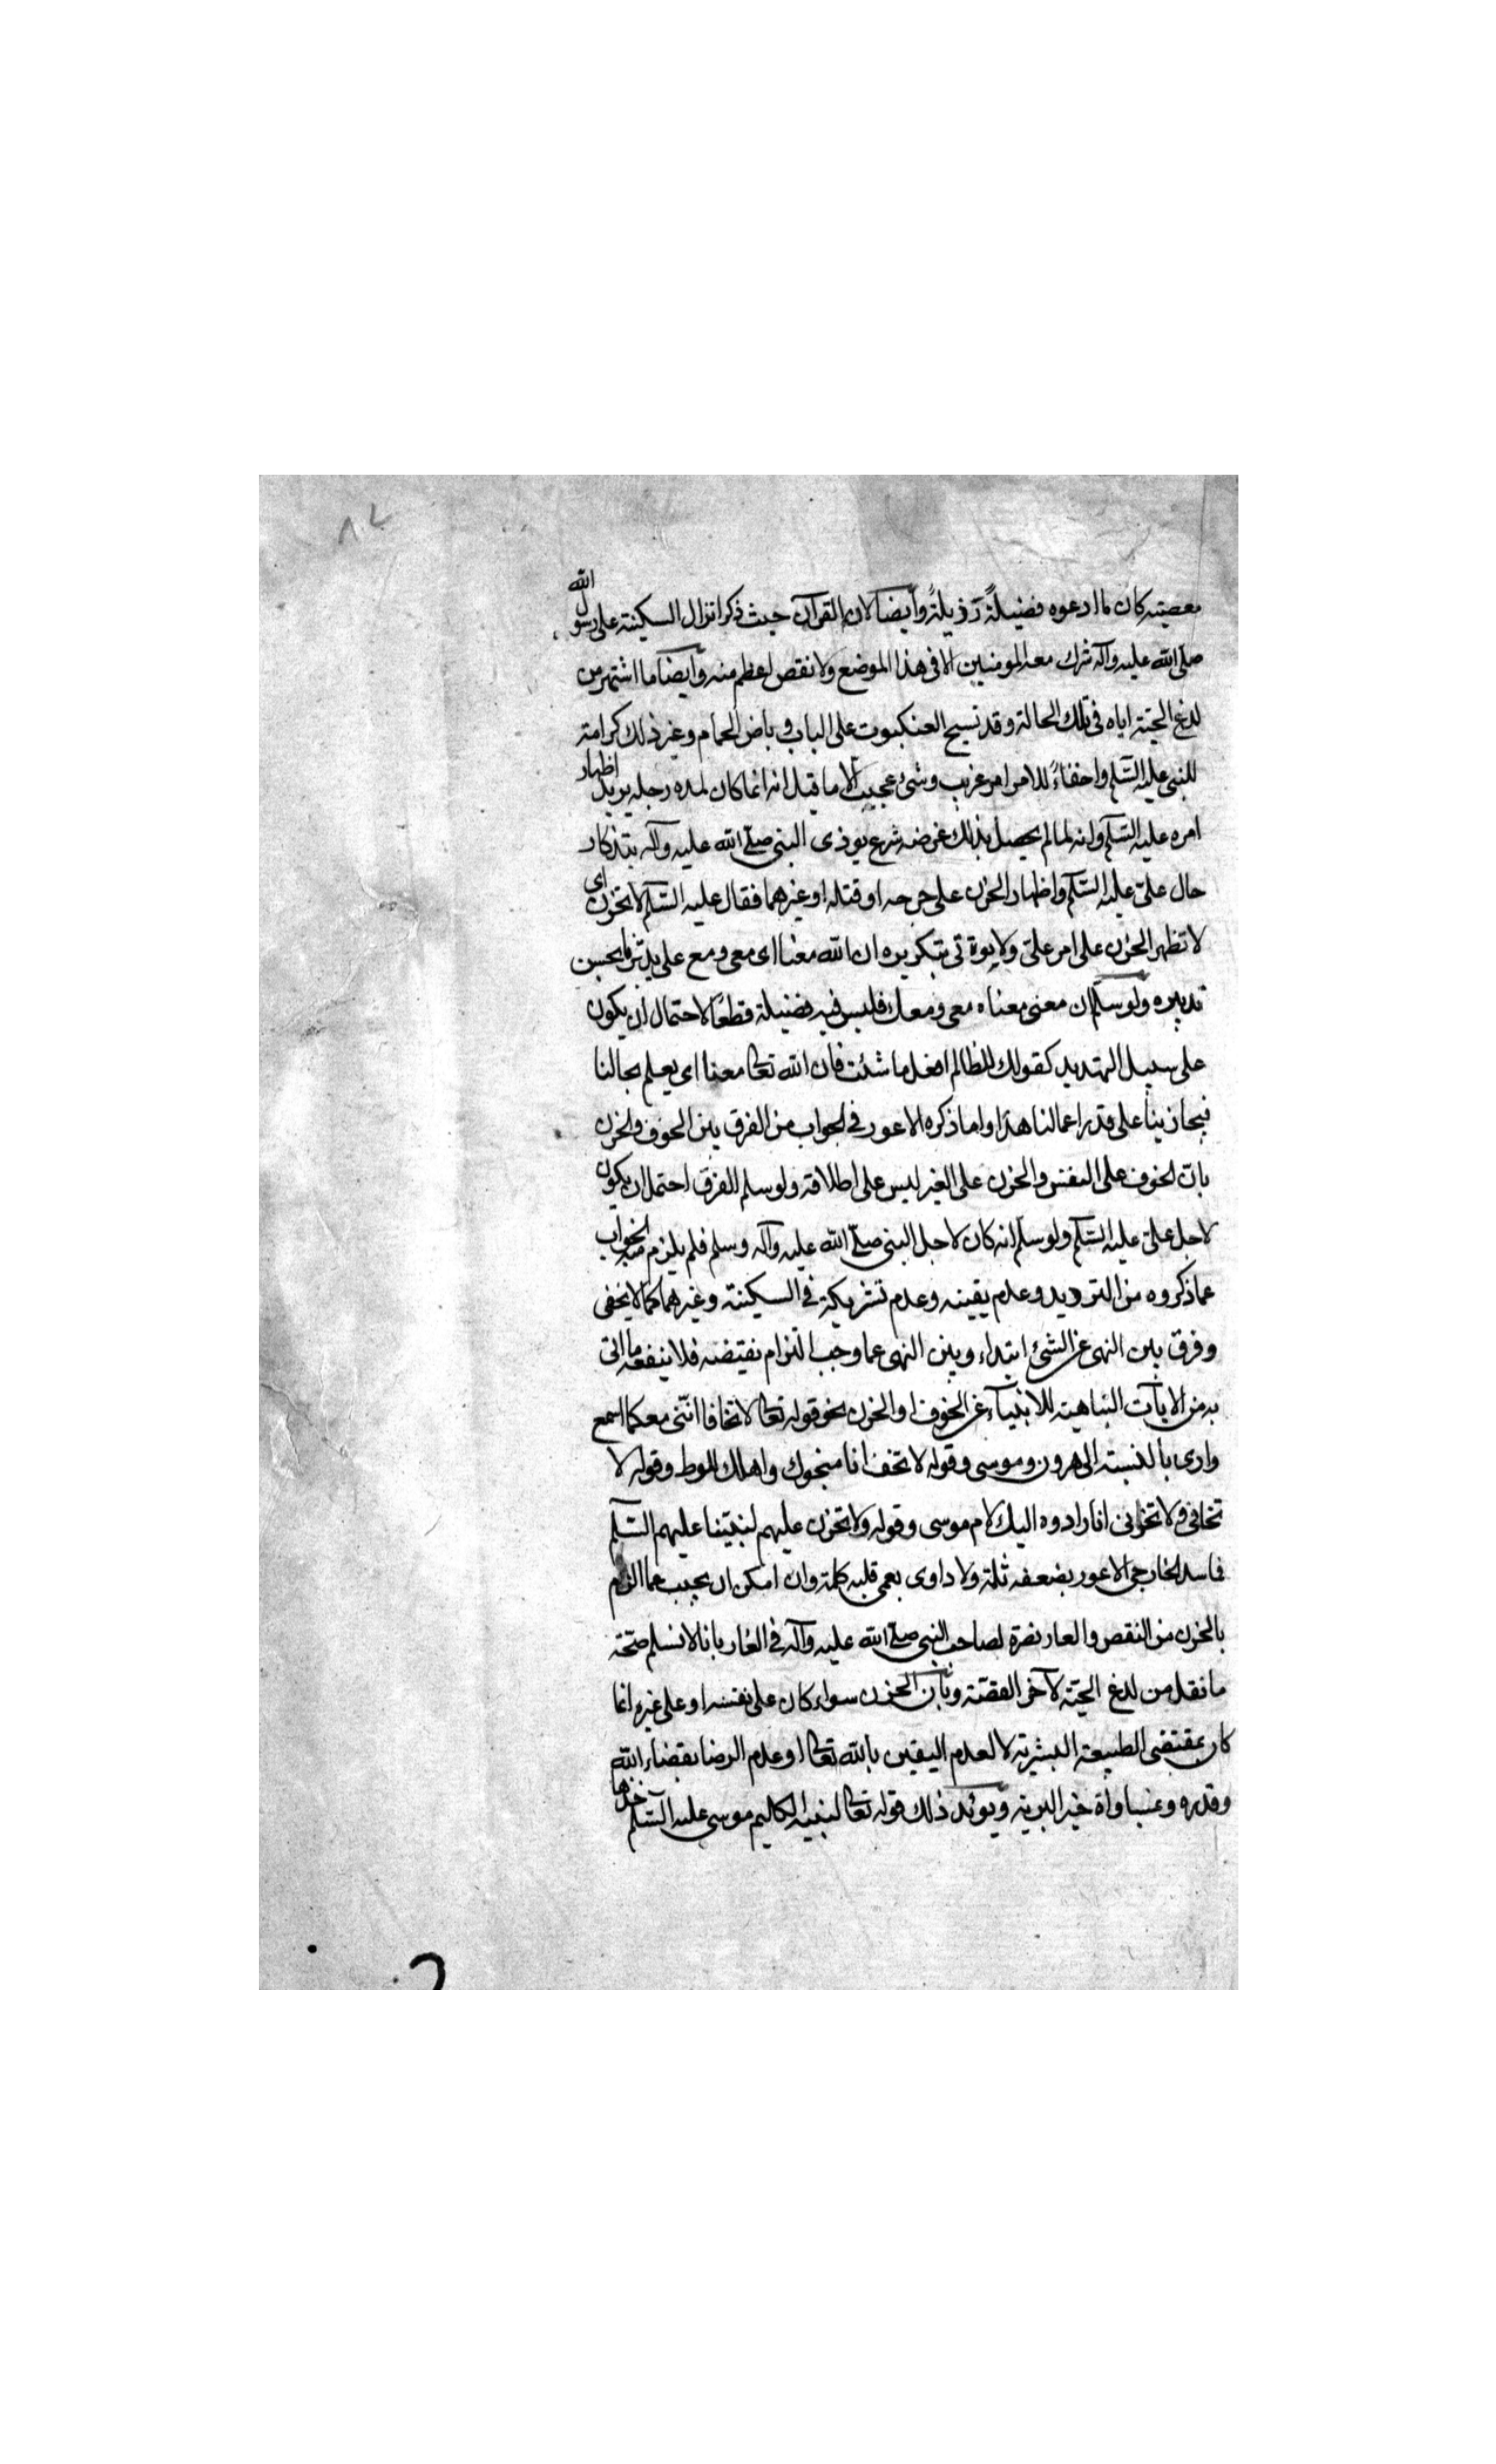 ٨٢
معصيته كان ما ادعوه فضيلةً رَذيلةً وأيضا لان القرآن حيث ذكر انزال السكينة على رسول الله
صلى الله عليه وآله شرك معه المومنين الا فى هذا الموضع ولا نقص اعظم منه وأيضا ما اشتهر من
لدغ الحيّة اياه فى تلك الحالة وقد نسج العنكبوت على الباب و باض الحمام وغير ذلك كرامة
للنبى عليه السّلم واخفاءً للامر امر غريب وشئ عجيب الا ما قيل انه انما كان لمده رجله يريد اظهار
امره عليه السّلم وانه لما لم يحصل بذلك غرضه شرع يوذى النبى صلى الله عليه وآله بتذكار
حال علىّ عليه السّلم واظهار الحزن على جرحه او قتله او غيرهما فقال عليه السّلم لا تحزن اى
لا تظهر الحزن على امر علىّ ولا بتكريره ان الله معنا اى معى ومع على يدبّرنا بحسن
تدبيره ولو سلّم ان معنى معنا معى ومعك فليس فيه فضيلة قطعًا لاحتمال أن يكون
على سبيل التهديد كقولك للظالم افعل ما شئت فان الله تعالى معنا اى يعلم بحالنا
فيجازينا على قدر اعمالنا هذا واما ذكره الاعور فى الجواب من الفرق بين الخوف والحزن
بانّ الخوف على النفس والحزن على الغير ليس على اطلاقه ولو سلم الفرق احتمل ان يكون
لاجل علىّ عليه السّلم ولو سلّم انه كان لاجل النبى صلّى الله عليه وآله وسلم فلم يلزم منه الجواب
عما ذكروه من الترديد وعدم يقينه وعدم تشريكه فى السكينة وغيرهما كما لا يخفى
وفرق بين النهى عن الشئ ابتداء وبين النهى عما وجب التزام نقيضه فلا ينفعه ما اتى
به من الايآت الناهية للانبيآء عن الخوف او الحزن نحو قوله تعالى لا تخافا انّنى معكما اسمع
وارى بالنسبة الى هرون وموسى وقوله لا تخف انا منجوك واهلك للوط وقوله لا
تخافى ولا تحزنى انا رادوه اليك لام موسى وقوله ولا تحزن عليهم لنبيّنا عليهم السّلم
فما سد الخارجى الاعور بضعفه ثلمة ولا داوى بعمى قلبه كلمة وان امكن ان يجيب عما الزم
بالحزن من النقص والعار نصرة لصاحب النبى صلى الله عليه وآله فى الغار بانا لا نسلم صحّة
ما نقل من لدغ الحيّة لآخر القصّة وبأن الحزن سواء كان على نفسه او على غيره انما
كان بمقتضى الطبيعة البشريّة لا لعدم اليقين بالله تعالى او عدم الرضا بقضاء الله
وقدره خير البرية ويؤيد ذلك قوله تعالى لنبيه الكليم موسى عليه السّلم خذها